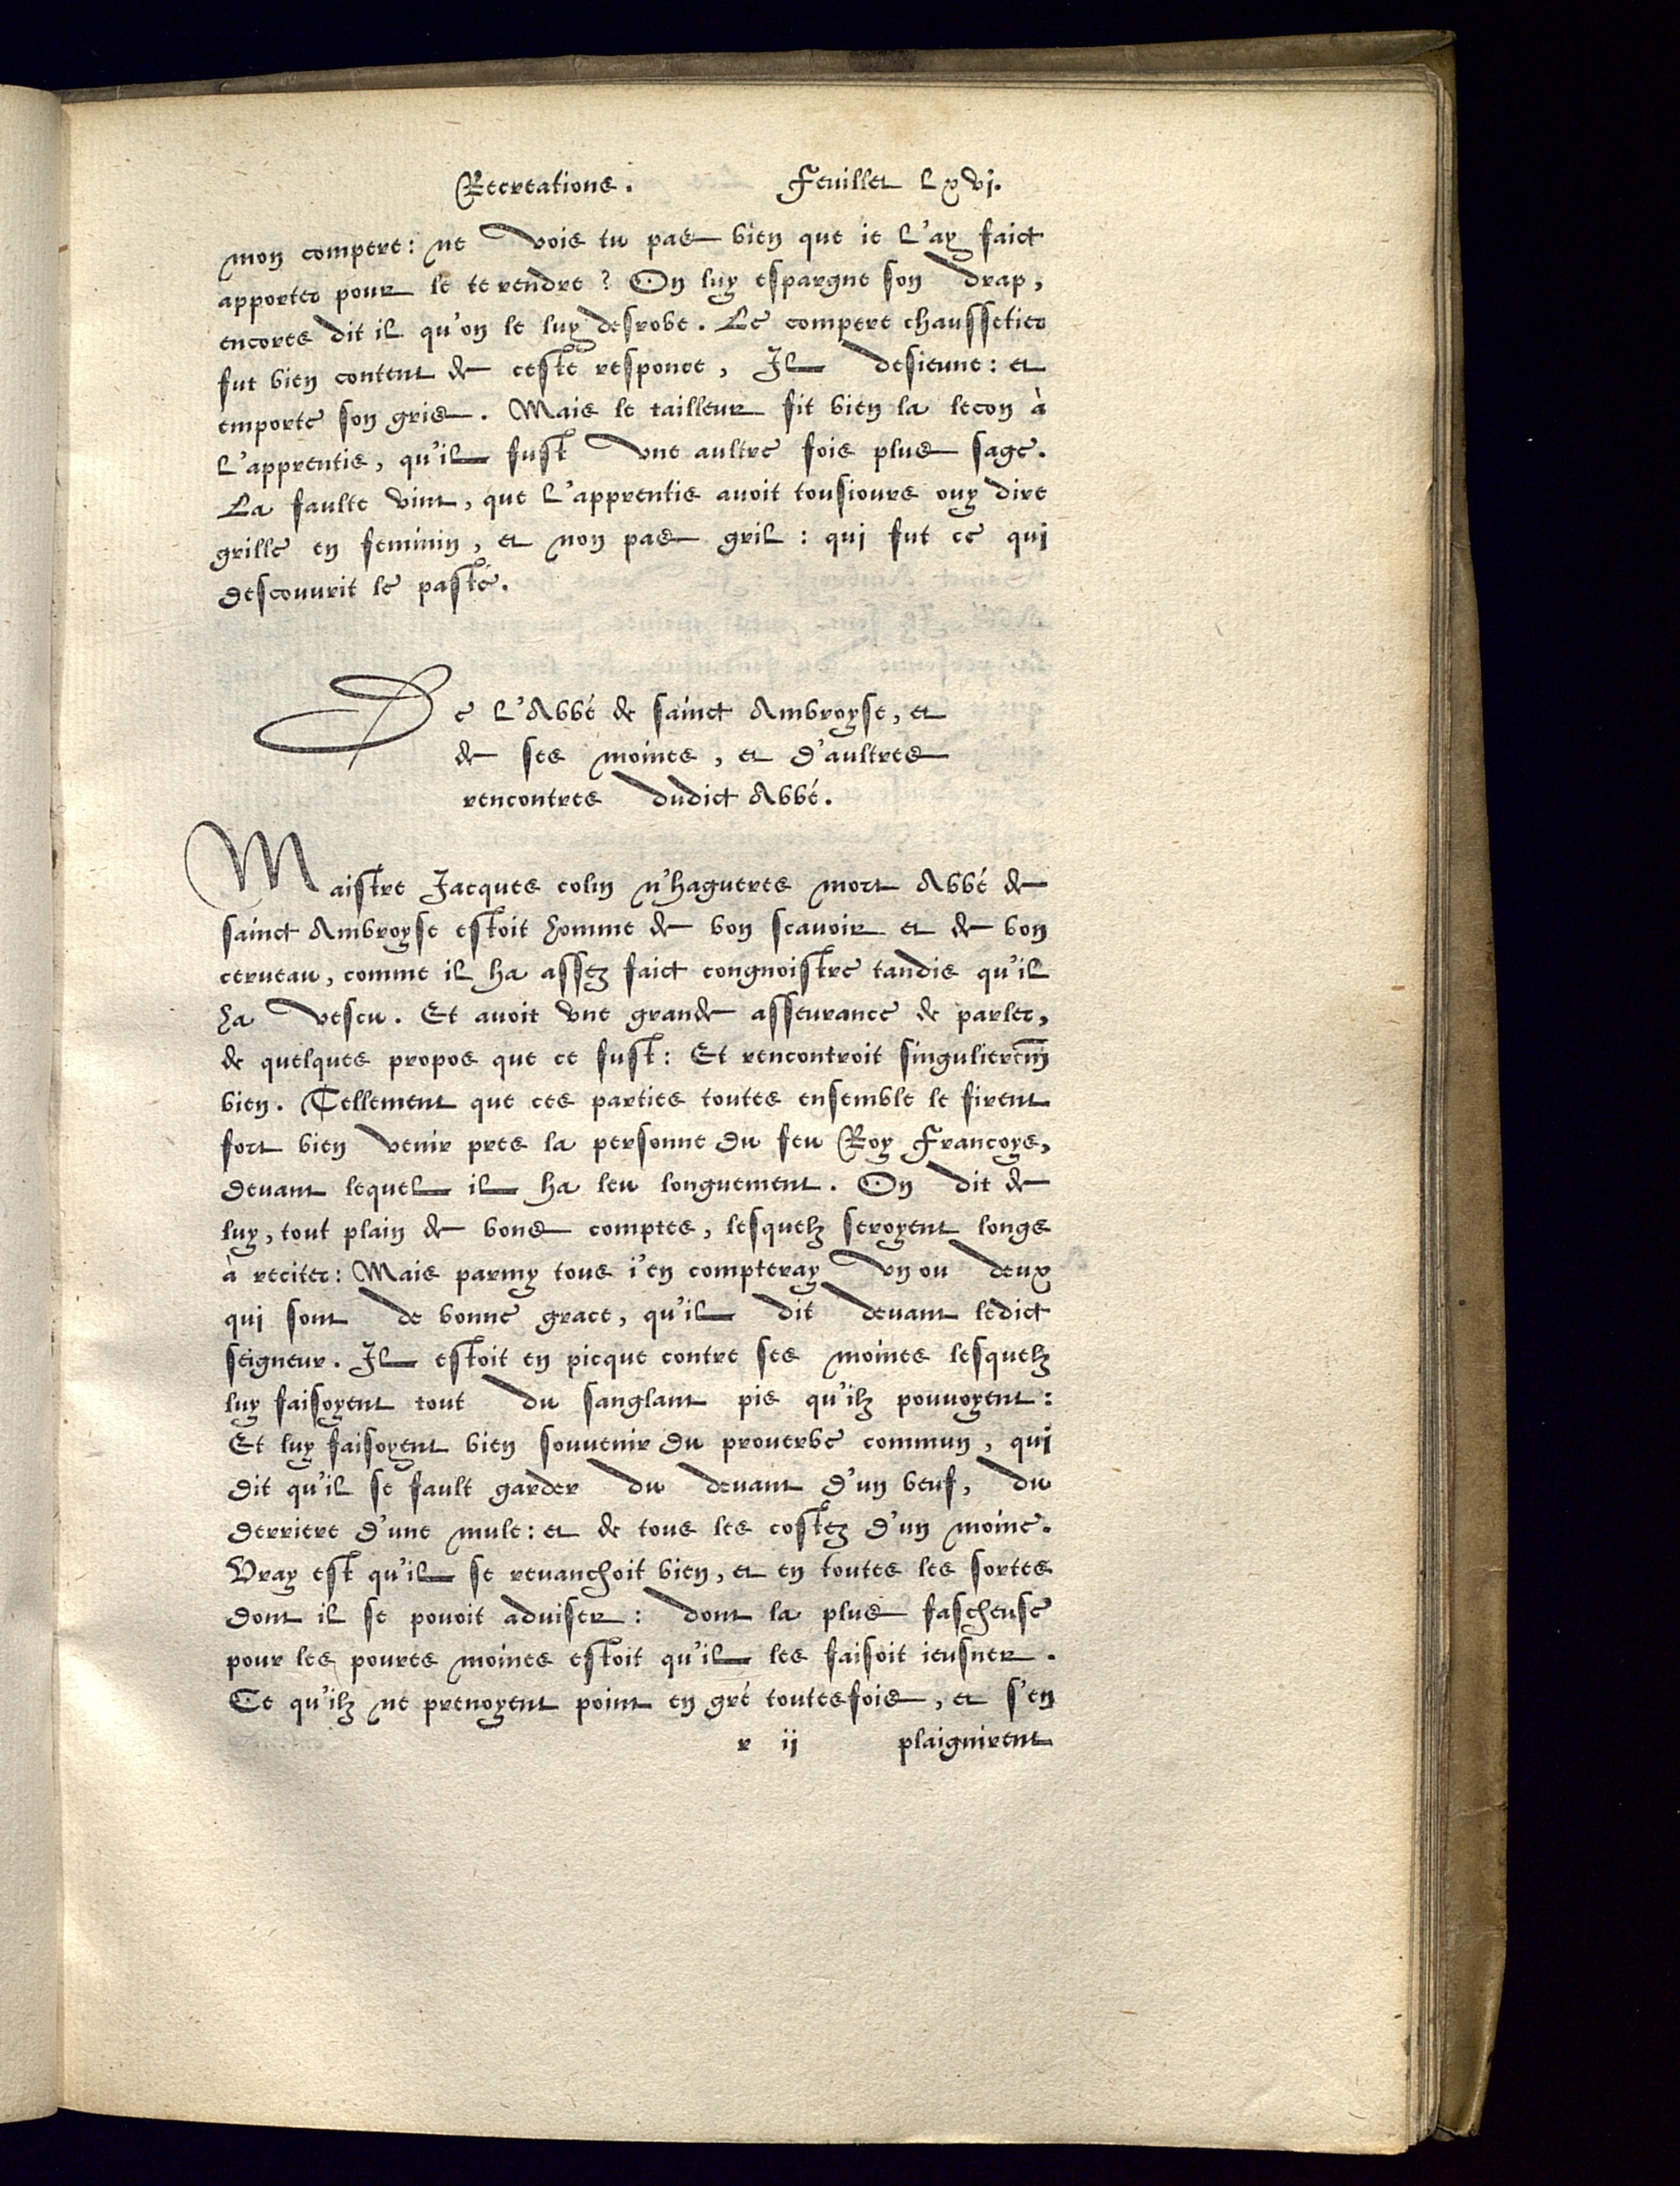 Recreations. Feuillet lxvj.
mon compere: ne vois tu pas bien que ie l'ay faict
apporter pour le te rendre? On luy espargne son drap,
encores dit il qu'on le luy desrobe. Le compere chaussetier
fut bien content de ceste responce, Il desieune: et
emporte son gris. Mais le tailleur fit bien la lecon à
l'apprentis, qu'il fust vne aultre fois plus sage.
La faulte vint, que l'apprentis auoit tousiours ouy dire
grille en feminin, et non pas gril: qui fut ce qui
descouurit le pasté.
De l'Abbé de sainct Ambroyse, et
de ses moines, et d'aultres
rencontres dudict Abbé.
Maistre Jacques colin n'hagueres mort Abbé de
sainct Ambroyse estoit homme de bon scauoir et de bon
cerueau, comme il ha assez faict congnoistre tandis qu'il
ha vescu. Et auoit vne grande asseurance de parler,
de quelques propos que ce fust: Et rencontroit singulierem̄
bien. Tellement que ces parties toutes ensemble le firent
fort bien venir pres la personne du feu Roy Francoys,
deuant lequel il ha leu longuement. On dit de
luy, tout plain de bons comptes, lesquelz seroyent longs
à reciter: Mais parmy tous i'en compteray vn ou deux
qui sont de bonne grace, qu'il dit deuant ledict
seigneur. Il estoit en picque contre ses moines lesquelz
luy faisoyent tout du sanglant pis qu'ilz pouuoyent:
Et luy faisoyent bien souuenir du prouerbe commun, qui
dit qu'il se fault garder du deuant d'un beuf, du
derriere d'une mule: et de tous les costez d'un moine.
Vray est qu'il se reuanchoit bien, et en toutes les sortes
dont il se pouoit aduiser: dont la plus fascheuse
pour les poures moines estoit qu'il les faisoit ieusner.
Ce qu'ilz ne prenoyent point en gré toutesfois, et s'en
r ij plaignirent